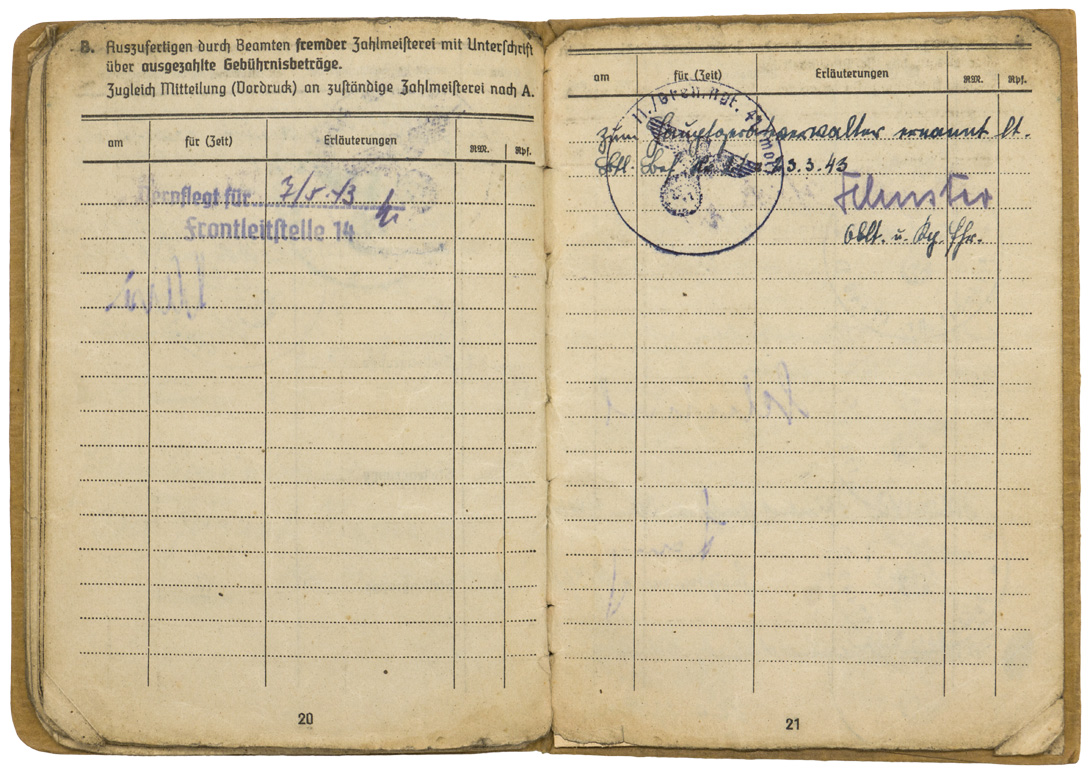 B. Auszufertigen durch Beamten fremder Zahlmeisterei mit Unterschrift
über ausgezahlte Gebührnisbeträge.
Zugleich Mitteilung (Vordruck) an zuständige Zahlmeisterei nach A.
am für (Zeit) Erläuterungen RM. Rpf.
Verpflegt für
Frontleitstelle 14
20
am für (Zeit) Erläuterungen RM. Rpf.
II./Gren. Rgt.
zum Hauptgeräteverwalter ernannt lt.
Btl. Bef. 23.3.43
Oblt. u. Kp. Fhr.
21